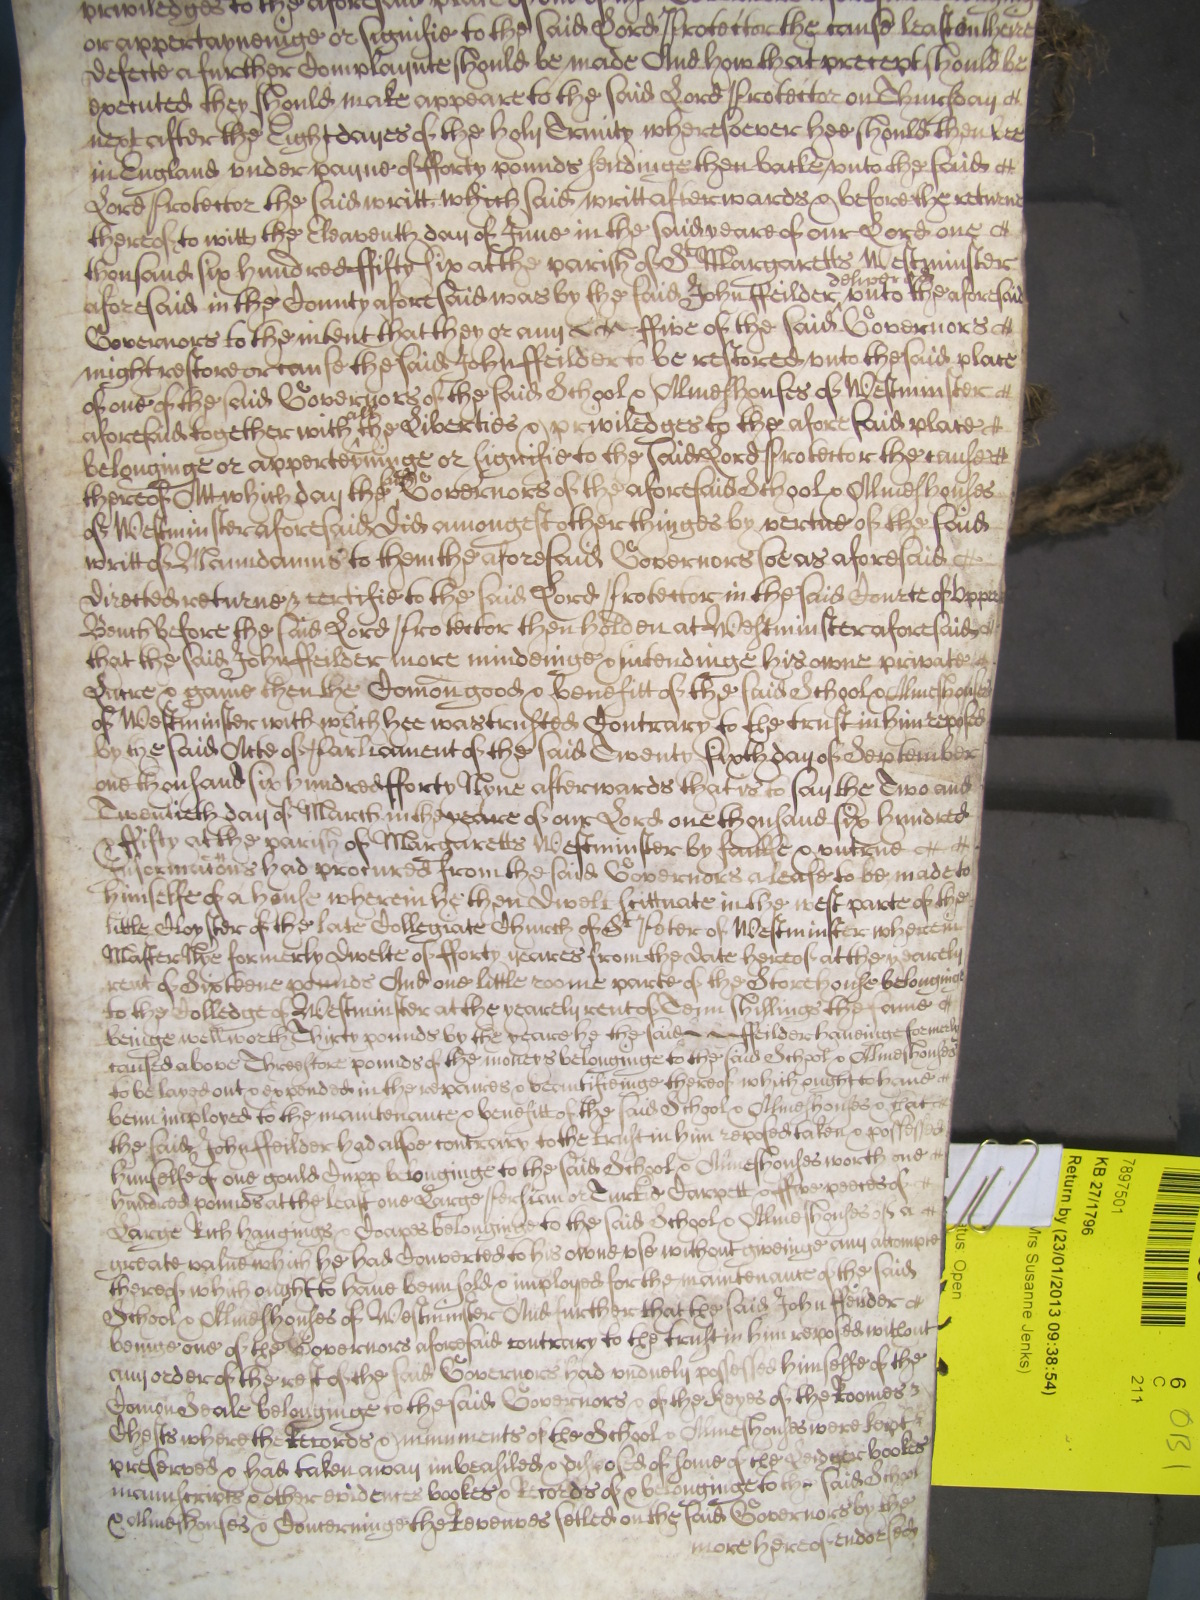 priviledges to the aforesaid place of one of the Governors aforesaid belonginge
or appertayneinge or signifie to the said Lord Protector the cause least on theire
defecte a further Complaynte should be made And how that precept should be
executed they should make appeare to the said Lord Protector on Thursday
next after the Eight dayes of the holy Trinity wheresoever hee should then bee
in England under payne of fforty pounds sendinge then backe unto the said
Lord Protector the said writt which said writt afterwards & before the returne
thereof to witt the Eleaventh day of June in the said yeare of our Lord one
thousand six hundred ffifty six at the parish of St Margaretts Westminster
aforesaid in the County aforesaid was by the said John ffeilder delivered unto the aforesaid
Governors to the intent that they or any ffive of the said Governors
might restore or cause the said John ffeilder to be restored unto the said place
of one of the said Governors of the said School & Almeshouses of Westminster
aforesaid together with all the Liberties & priviledges to the aforesaid place
belonginge or apperteyninge or signifie to the said Lord Protector the cause
thereof Att which day the said Governors of the aforesaid School & Almeshouses
of Westminster aforesaid Did amongest other thinges by vertue of the said
writt of Maundamus to them the aforesaid Governors soe as aforesaid
directed returne & certifie to the said Lord Protector in the said Courte of Upper
Bench before the said Lord Protector then holden at Westminster aforesaid
that the said John ffeilder more mindeinge & intendinge his owne private
Lucre & gaine then the Comon good & benefitt of the said School & Almeshouses
of Westminster with which hee was trusted Contrary to the trust in him reposed
by the said Acte of Parliament of the said Twenty sixth day of September
one thousand six hundred fforty Nyne afterwards that is to say the Two and
Twentieth day of March in the yeare of our Lord one thousand six hundred
& ffifty at the parish of Margaretts Westminster by faulse & untrue
Informacons had procured from the said Governors a lease to be made to
himselfe of a house wherein he then Dwelt scittuate in the west parte of the
little Cloyster of the late Collegiate Church of St Peter of Westminster wherein
Master Nye formerly dwelte of fforty yeares from the date hereof at the yearely
rent of Sixteene pounds And one little roome parte of the Storehouse belonginge
to the Colledge of Westminster at the yearely rent of Tenn shillings the same
beinge well worth Thirty pounds by the yeare he the said ffeilder haveinge formerly
caused above Threescore pounds of the moneys belonginge to the said School & Almeshouses
to be layed out & expended in the repaires & beautifieinge thereof which ought to have
benn imployed to the maintenance & benefitt of the said School & Almeshouses & that
the said John ffeilder had alsoe contrary to the trust in him reposed taken & possessed
himselfe of one gould Cupp belonginge to the said School & Almeshouses worth one
hundred pounds at the least one Large Persian or Turkie Carpett & ffive peeces of
Large Rich hangings & Coapes belonginge to the said School & Almeshouses of a
greate value which he had Converted to his owne use without giveinge any accompte
thereof which ought to have benn sold & imployed for the maintenance of the said
School & Almeshouses of Westminster And further that the said John ffeilder
beinge one of the Governors aforesaid contrary to the trust in him reposed without
any order of the rest of the said Governors had unduely possessed himselfe of the
Comon Seale belonginge to the said Governors & of the Keyes of the Roomes &
Chests where the Records & muniments of the School & Almeshouses were kept &
preserved & had taken away imbeasiled & disposed of some of the Leidger bookes
manuscripts & other evidences bookes & Records of & belonginge to the said School
& Almeshouses & Concerninge the Revenues setled on the said Governors by the
more hereof endorsed
7897501
KB 27/1796
Return by (23/01/2013 09:38:54)
Mrs Susanne Jenks)
tus Open
6
C
211